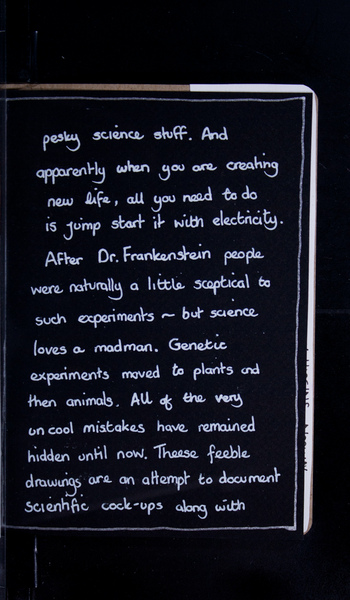 pesky science stuff. And
apparently when you are creating
new life, all you need to do
is jump start it with electricity.
After Dr. Frankenstein people
were naturally a little sceptical to
such experiments ~ but science
loves a madman. Genetic
experiments moved to plants and
then animals. All of the very
uncool mistakes have remained
hidden until now. Theese feeble
drawings are an attempt to document
scientific cock-ups along with